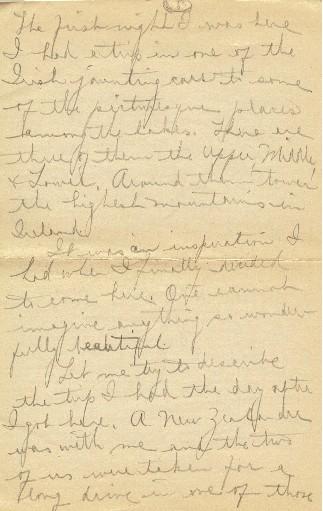 The first night I was here
I had a trip in one of the
Irish jaunting cars to some
of the picturesque places
among the lakes. There are
three of them the Upper Middle
& Lower. Around them tower
the highest mountains in
Ireland.
It was an inspiration I
had when I finally decided
to come here. One cannot
imagine anything so wonder-
fully beautiful.
Let me try to describe
the trip I had the day after
I got here. A New Zealander
was with me and the two
of us were taken for a
long drive in one of those